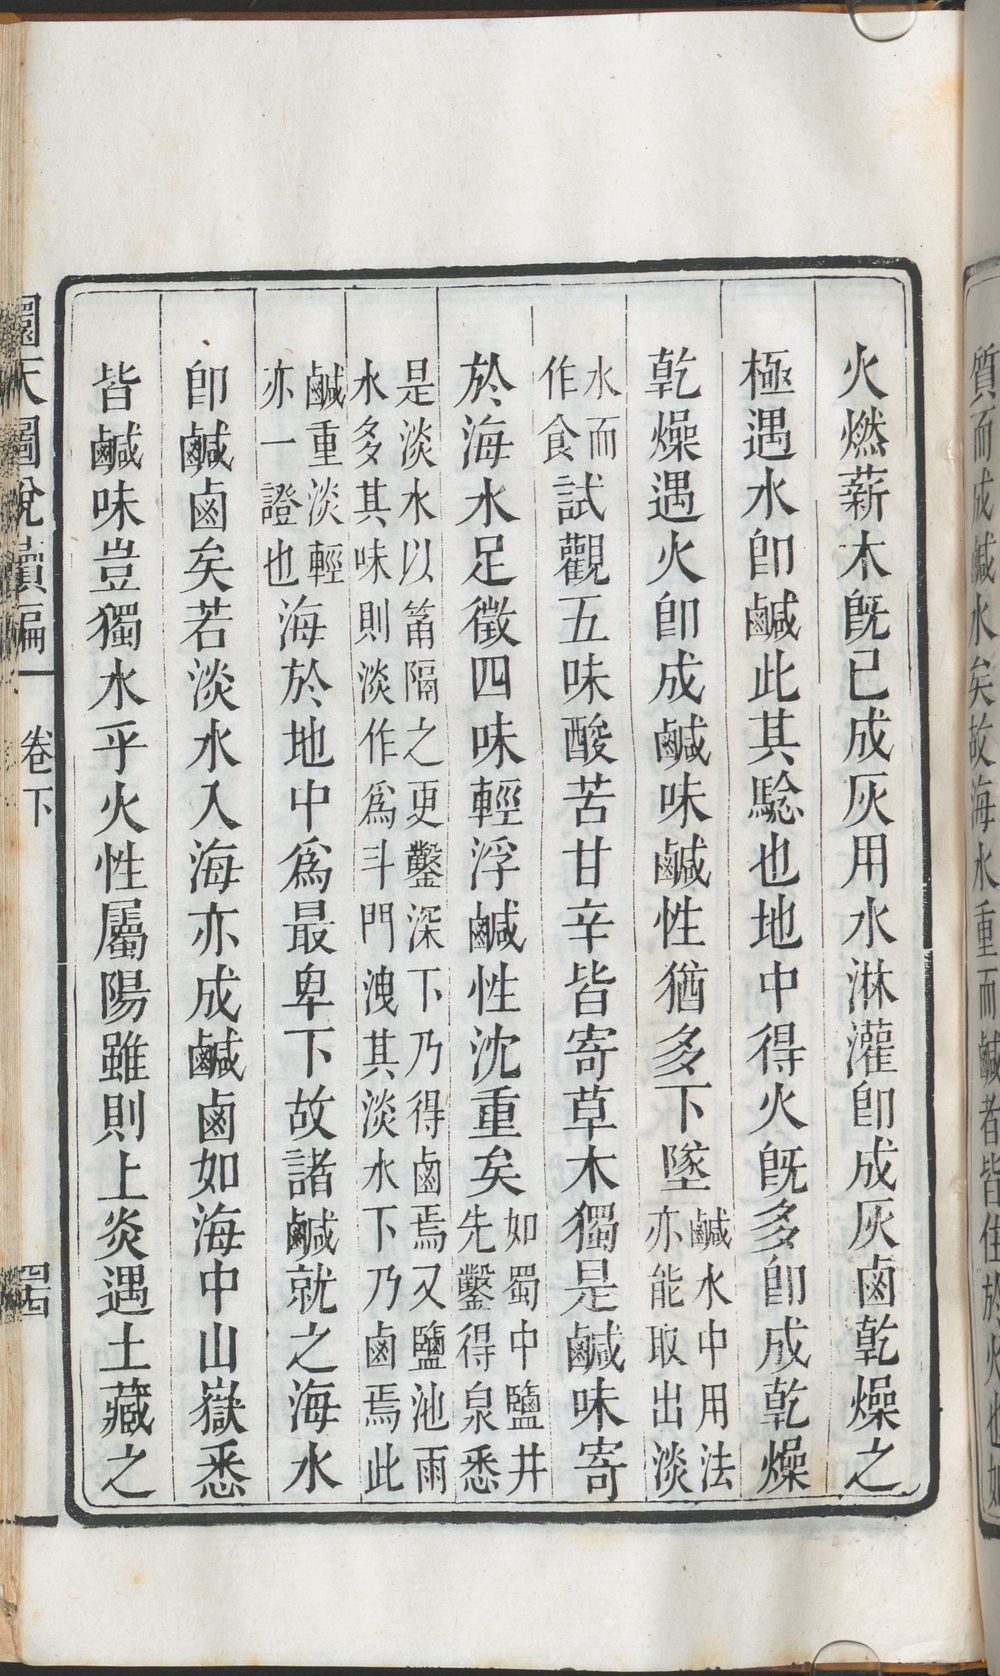 質而成鹹水矣故海水重而鹹者皆
火燃薪木既已成灰用水淋灌卽成灰鹵乾燥之
極遇水卽鹹此其驗也地中得火既多卽成乾燥
乾燥遇火卽成鹹味鹹性猶多下墜鹹水中用法亦能取出淡
水而作食試觀五味酸苦甘辛皆寄草木獨是鹹味寄
於海水足徵四味輕浮鹹性沈重矣如蜀中鹽井先鑿得泉悉
是淡水以筩隔之更鑿深下乃得鹵焉又鹽池雨水多其味則淡作爲斗門洩其淡水下乃鹵焉此
鹹重淡輕亦一證也海於地中爲最卑下故諸鹹就之海水
卽鹹鹵矣若淡水入海亦成鹹鹵如海中山嶽悉
皆鹹味豈獨水乎火性屬陽雖則上炎遇土藏之
圜天圖說續編 卷下